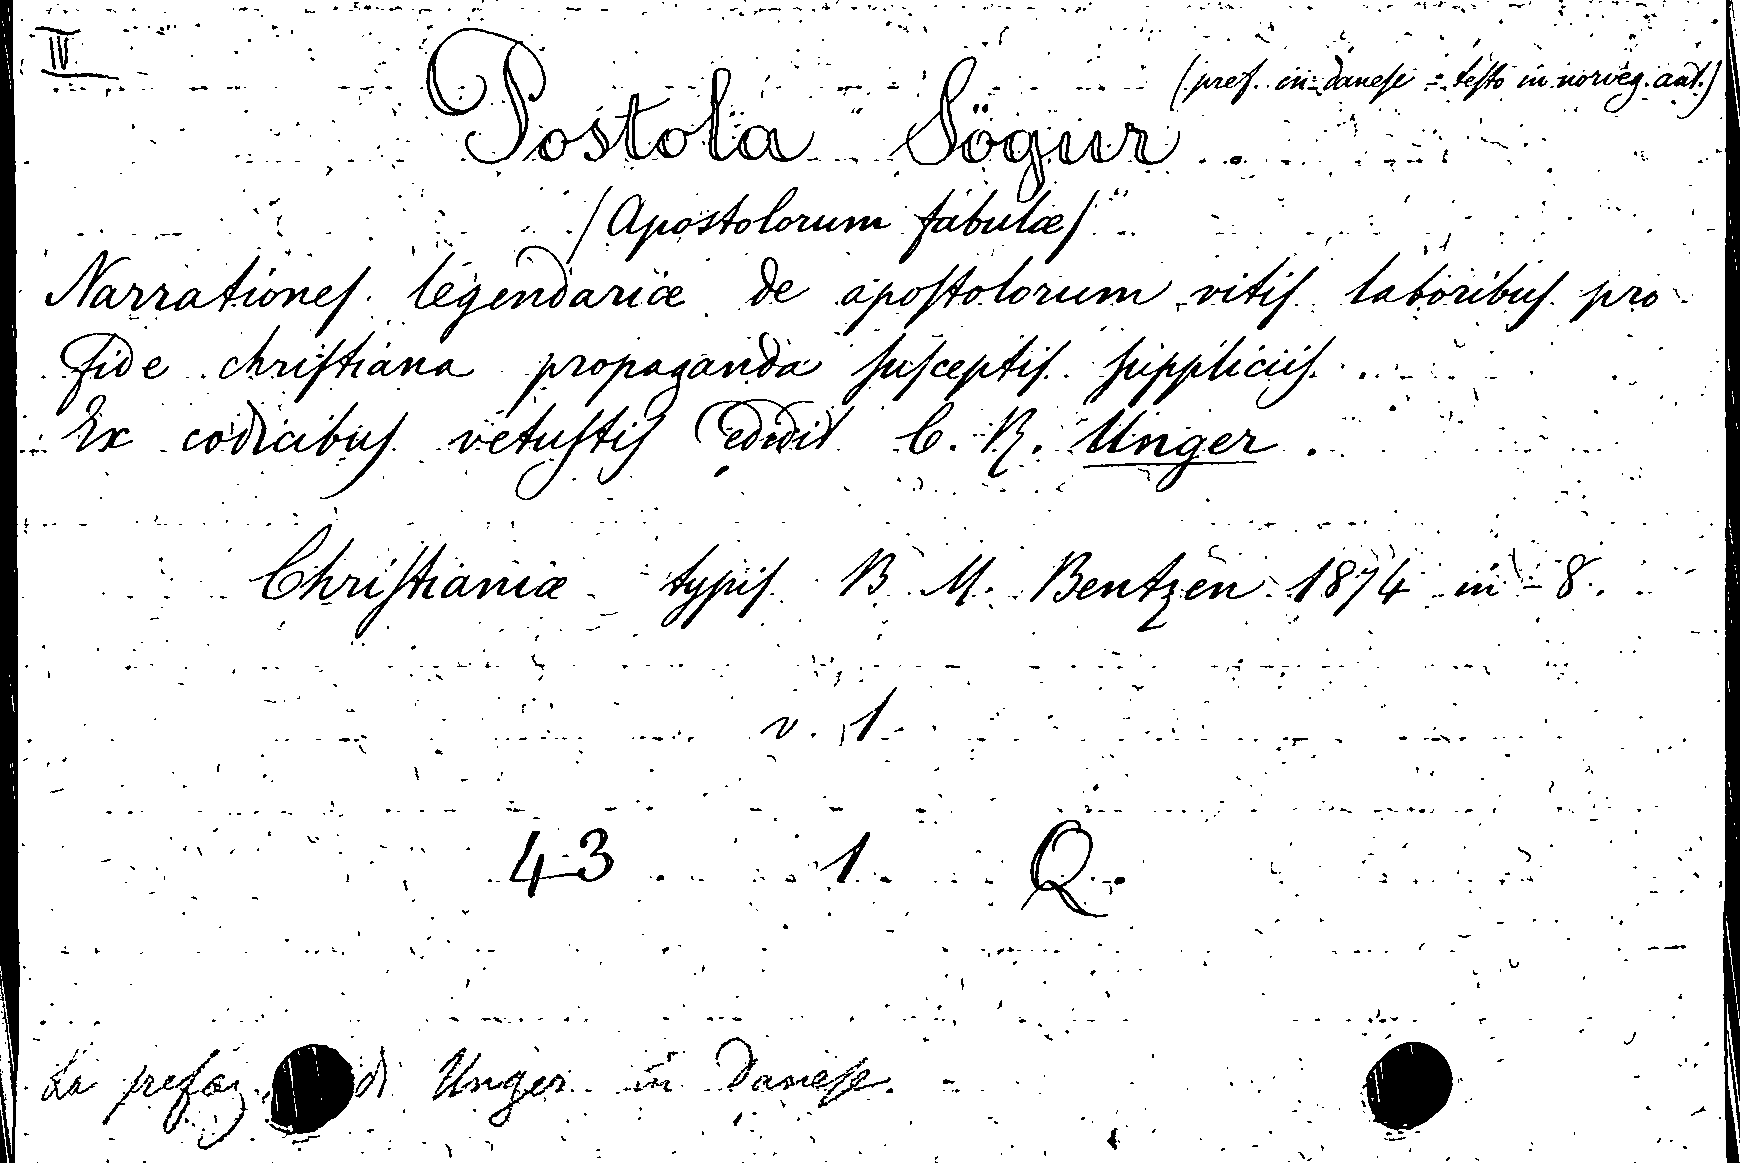 IV
(pref. in danese = testo in norveg. ant.)
Postola Sögur
/Apostolorum fabulæ/
Narrationes legendariæ de apostolorum vitis laboribus pro
fide christiana propaganda susceptis suppliciis.
Ex codicibus vetustis edidit C. R. Unger.
Christianiæ typis B M. Bentzen 1874 in-8.
v. 1
43 1 Q.
La prefaz. di Unger in Danese.